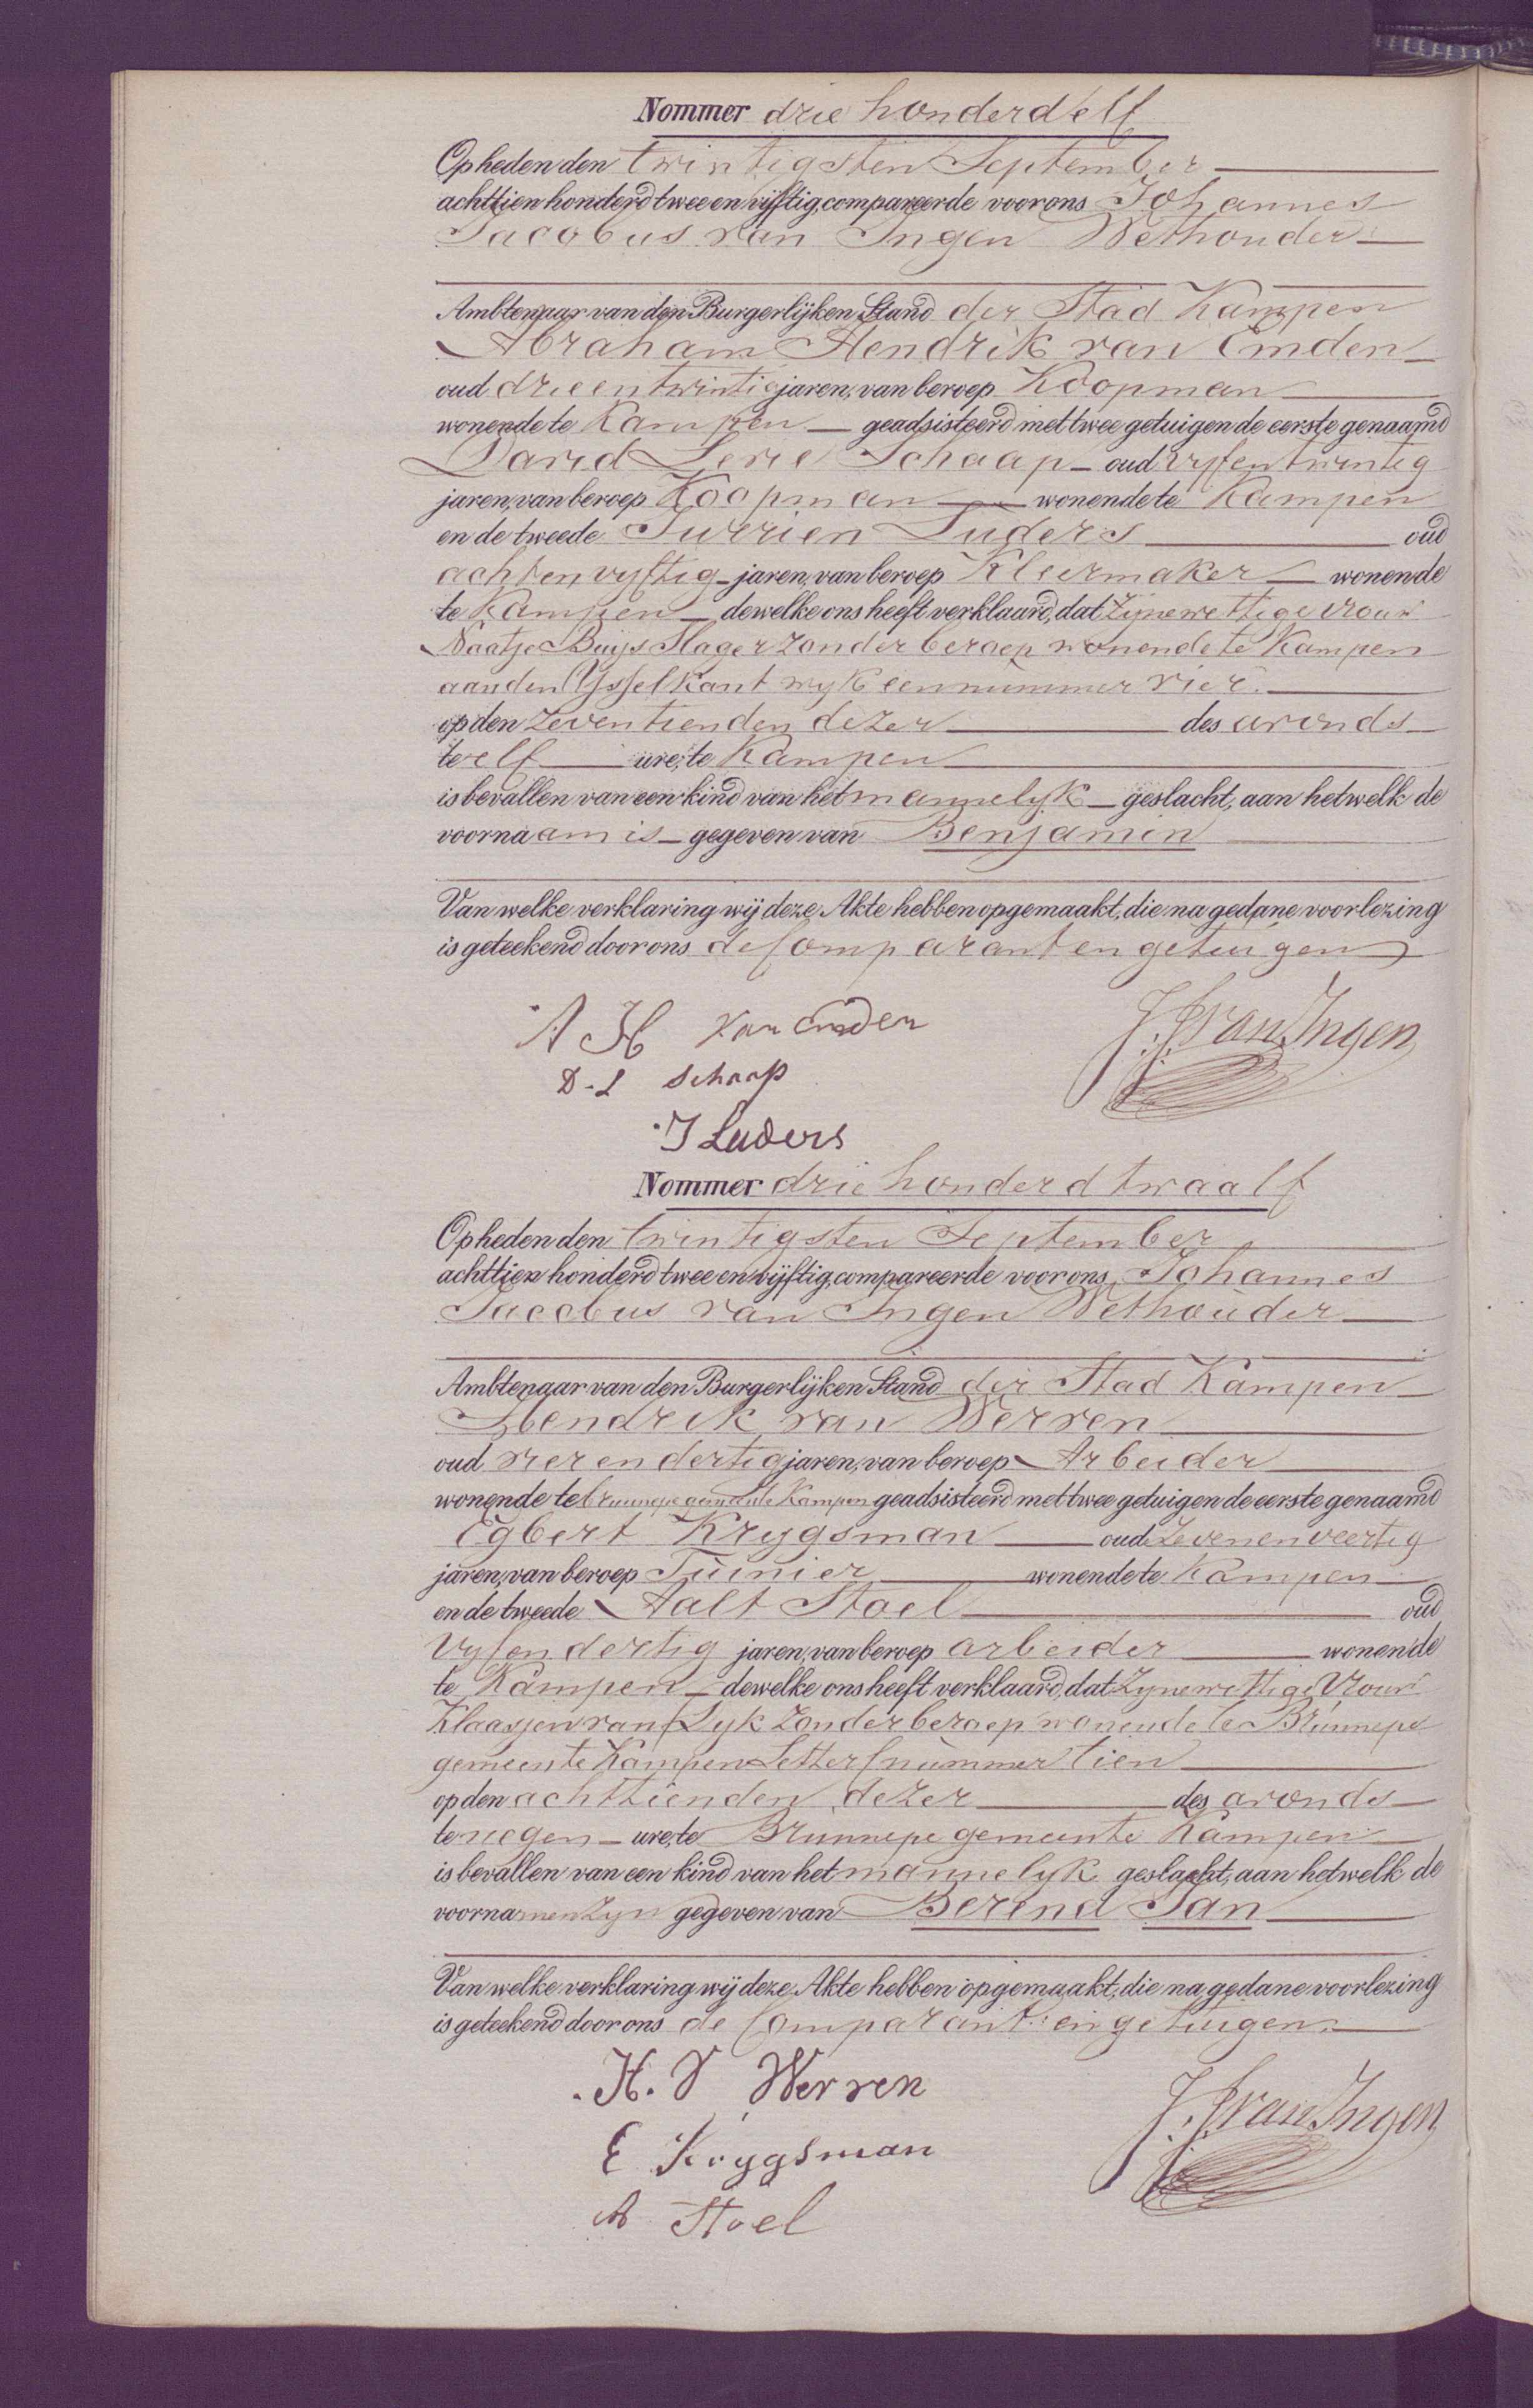 Nommer drie honderd elf
Op heden den twintigsten September
achttien honderd twee en vijftig, compareerde voor ons Johannes
Jacobus van Ingen Wethouder
Ambtenaar van den Burgerlijken Stand der Stad Kampen
Abraham Hendrik van Emden
oud drie en twintig jaren, van beroep Koopman
wonende te Kampen geadsisteerd met twee getuigen de eerste genaamd
David Levie Schaap oud vyf en twintig
jaren, van beroep Koopman wonende te Kampen
en de tweede Jurrien Luders oud
acht en vyftig jaren, van beroep Kleermaker wonende
te Kampen dewelke ons heeft verklaard, dat zyne wettige vrouw
Naatje Buys Slager zonder beroep wonende te Kampen
aan den Ysselkant wyk een nummer vier.
op den zeventienden dezer des avonds
te elf ure, te Kampen
is bevallen van een kind van het mannelyk geslacht, aan hetwelk de
voornaam is gegeven van Benjamin
Van welke verklaring wij deze Akte hebben opgemaakt, die na gedane voorlezing
is geteekend door ons de Comparant en getuigen
A H van Emden
J. J. van Ingen
D. L Schaap
J Luders
Nommer drie honderd twaalf
Op heden den twintigsten September
achttien honderd twee en vijftig, compareerde voor ons Johannes
Jacobus van Ingen Wethouder
Ambtenaar van den Burgerlijken Stand der Stad Kampen
Hendrik van Werven
oud vier en dertig jaren, van beroep Arbeider
wonende te Brunnepe gemeente Kampen geadsisteerd met twee getuigen de eerste genaamd
Egbert Krygsman oud zeven en veertig
jaren, van beroep Tuinier wonende te Kampen
en de tweede Aalt Stoel oud
vyf en dertig jaren, van beroep arbeider wonende
te Kampen dewelke ons heeft verklaard, dat zyne wettige Vrouw
Klaasjen van Dyk zonder beroep wonende te Brunnepe
gemeente Kampen Letter f nummer tien
op den achttienden dezer des avonds
te negen ure, te Brunnepe gemeente Kampen
is bevallen van een kind van het mannelyk geslacht, aan hetwelk de
voornamen zyn gegeven van Berend Jan
Van welke verklaring wij deze Akte hebben opgemaakt, die na gedane voorlezing
is geteekend door ons de Comparant en getuigen.
H. V Werven
J. J. van Ingen
E Krygsman
A Stoel